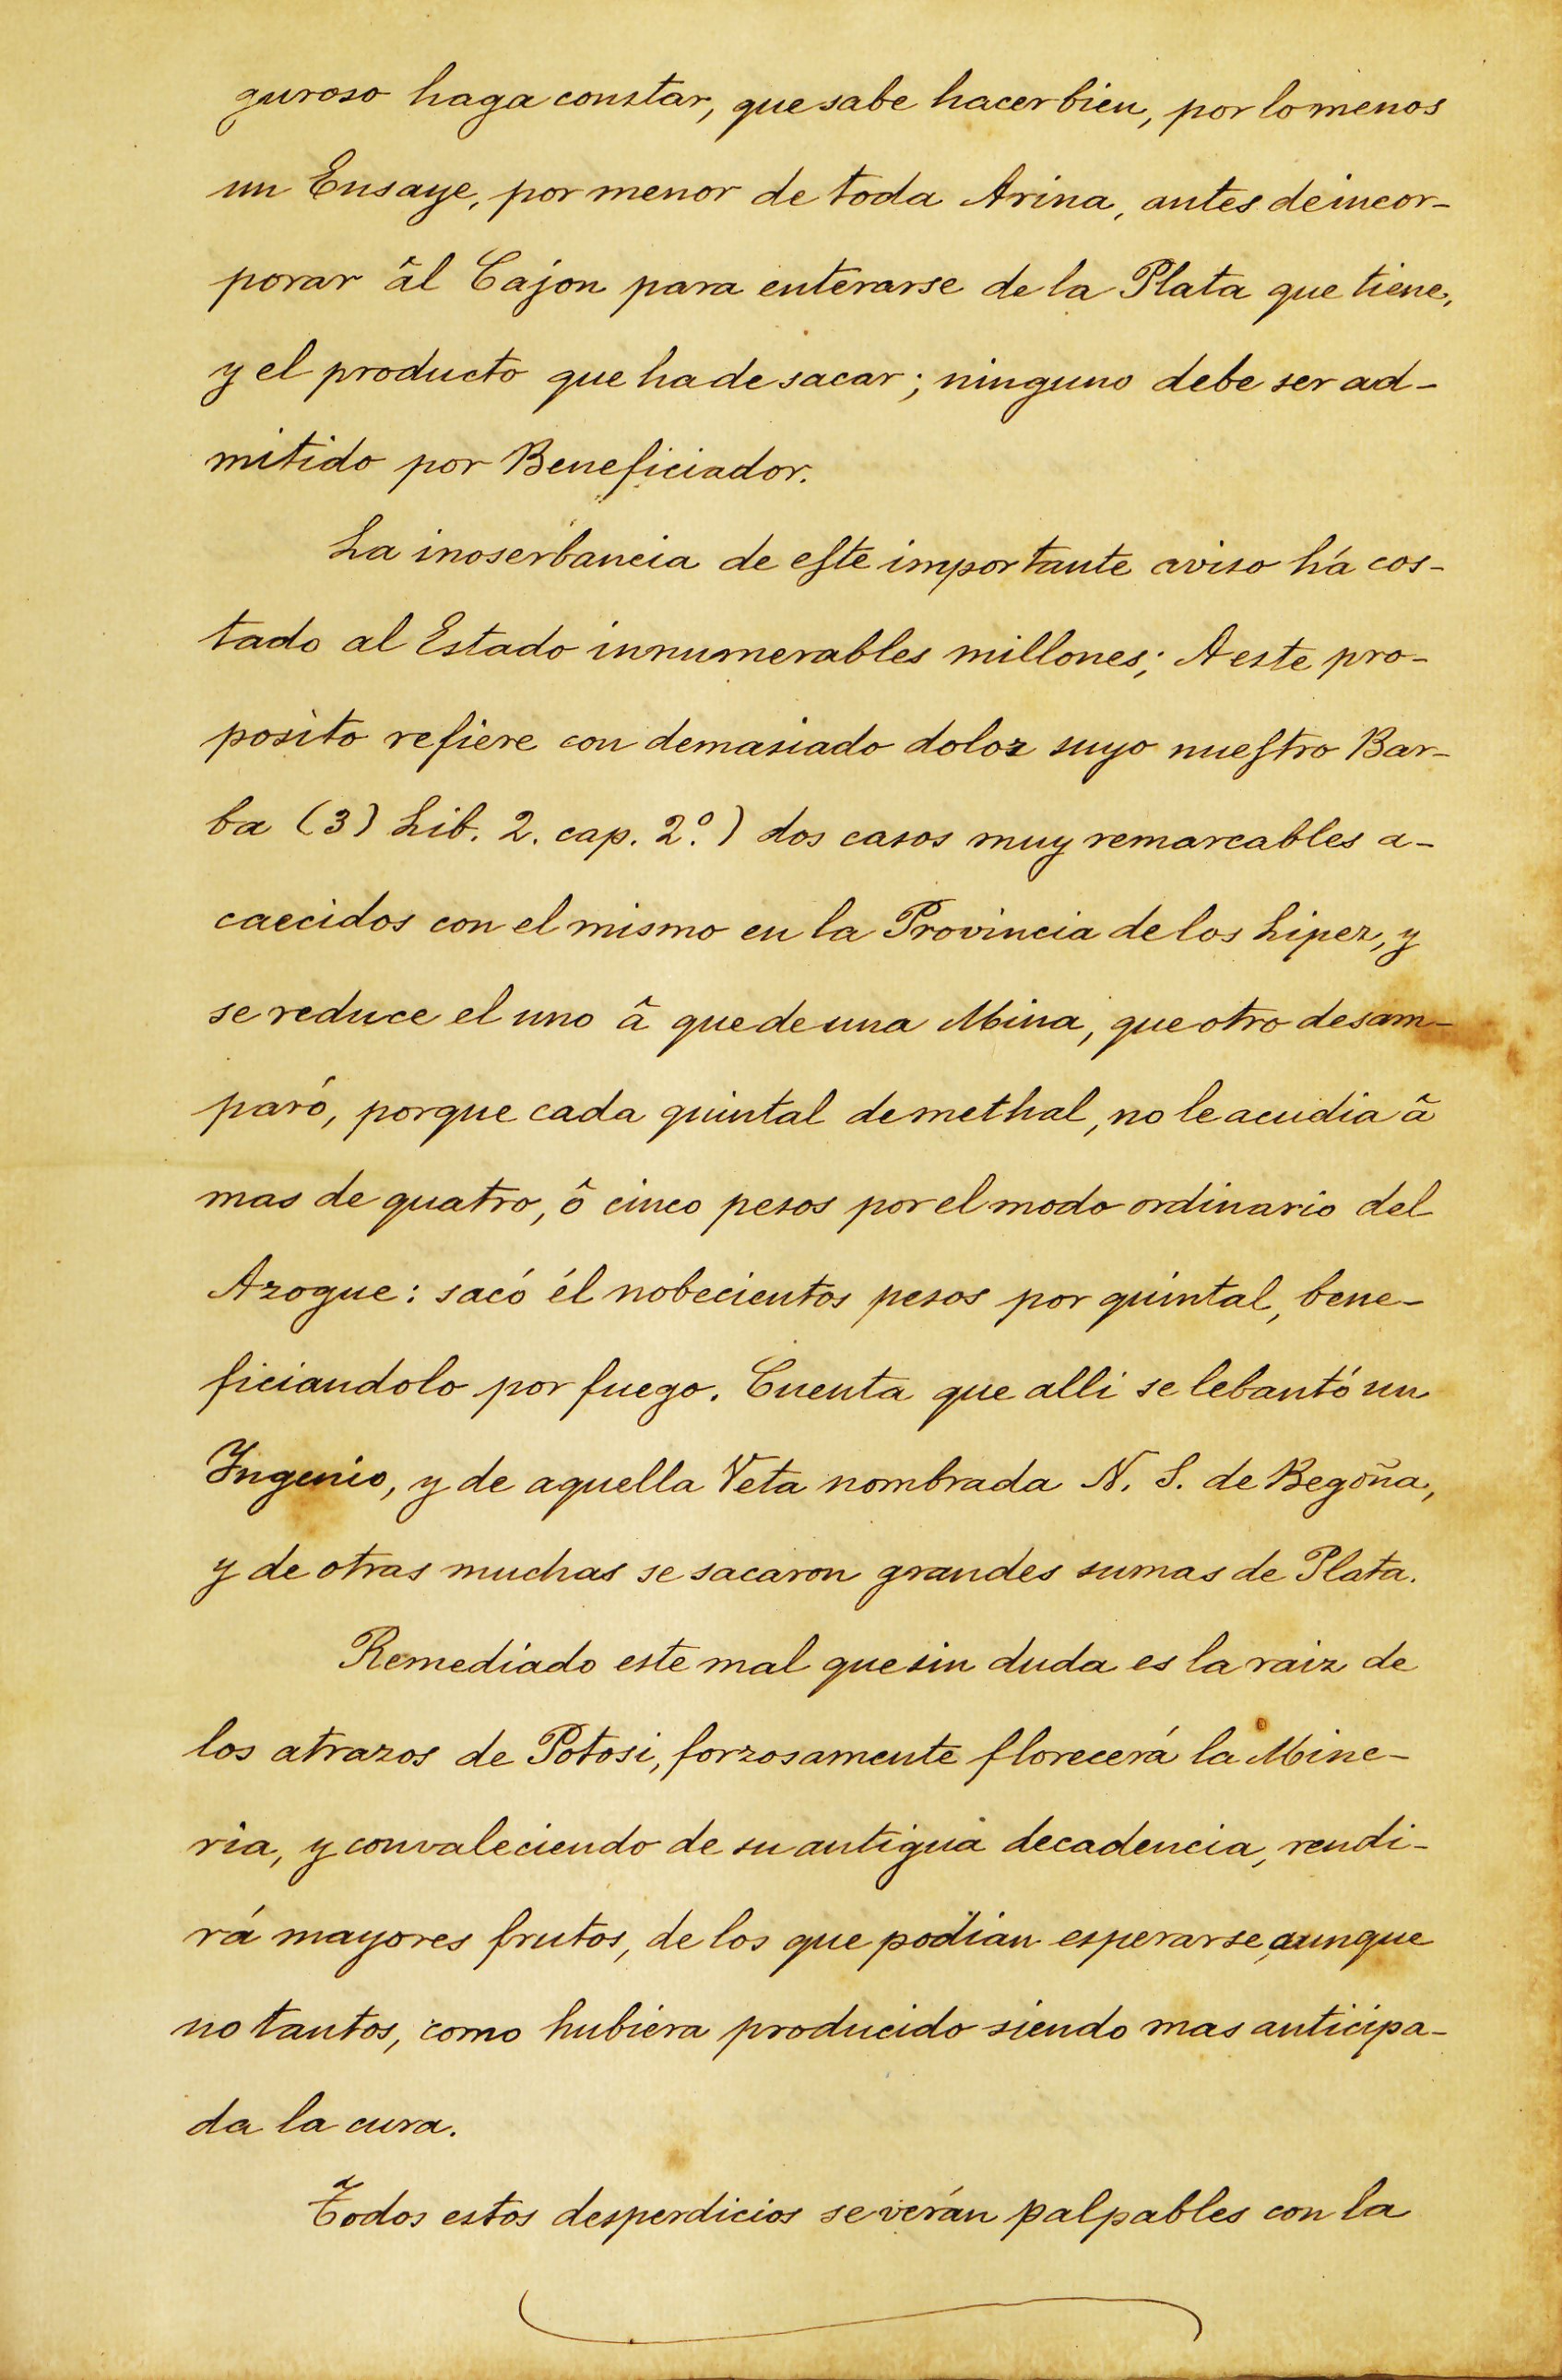 guroso haga constar, que sabe hacer bien, por lo menos
un Ensaye, por menor de toda Arina, antes de incor-
porar âl Cajon para enterarse de la Plata que tiene,
y el producto que ha de sacar; ninguno debe ser ad-
mitido por Beneficiador.
La inoserbancia de este importante aviso há cos-
tado al Estado innumerables millones; A este pro-
posito refiere con demasiado dolor suyo nuestro Bar-
ba (3) Lib. 2. cap. 2º.) dos casos muy remarcables a-
caecidos con el mismo en la Provincia de los Lipez, y
se reduce el uno â que de una Mina, que otro desam-
paró, porque cada quintal de methal, no le acudia â
mas de quatro, ô cinco pesos por el modo ordinario del
Azogue: sacó él nobecientos pesos por quintal, bene-
ficiandolo por fuego. Cuenta que alli se lebantó un
Ingenio, y de aquella Veta nombrada N. S. de Begoña,
y de otras muchas se sacaron grandes sumas de Plata.
Remediado este mal que sin duda es la raiz de
los atrazos de Potosi, forzosamente florecerá la Mine-
ria, y convaleciendo de su antigua decadencia, rendi-
rá mayores frutos, de los que podian esperarse, aunque
no tantos, como hubiera producido siendo mas anticipa-
da la cura.
Todos estos desperdicios se verán palpables con la